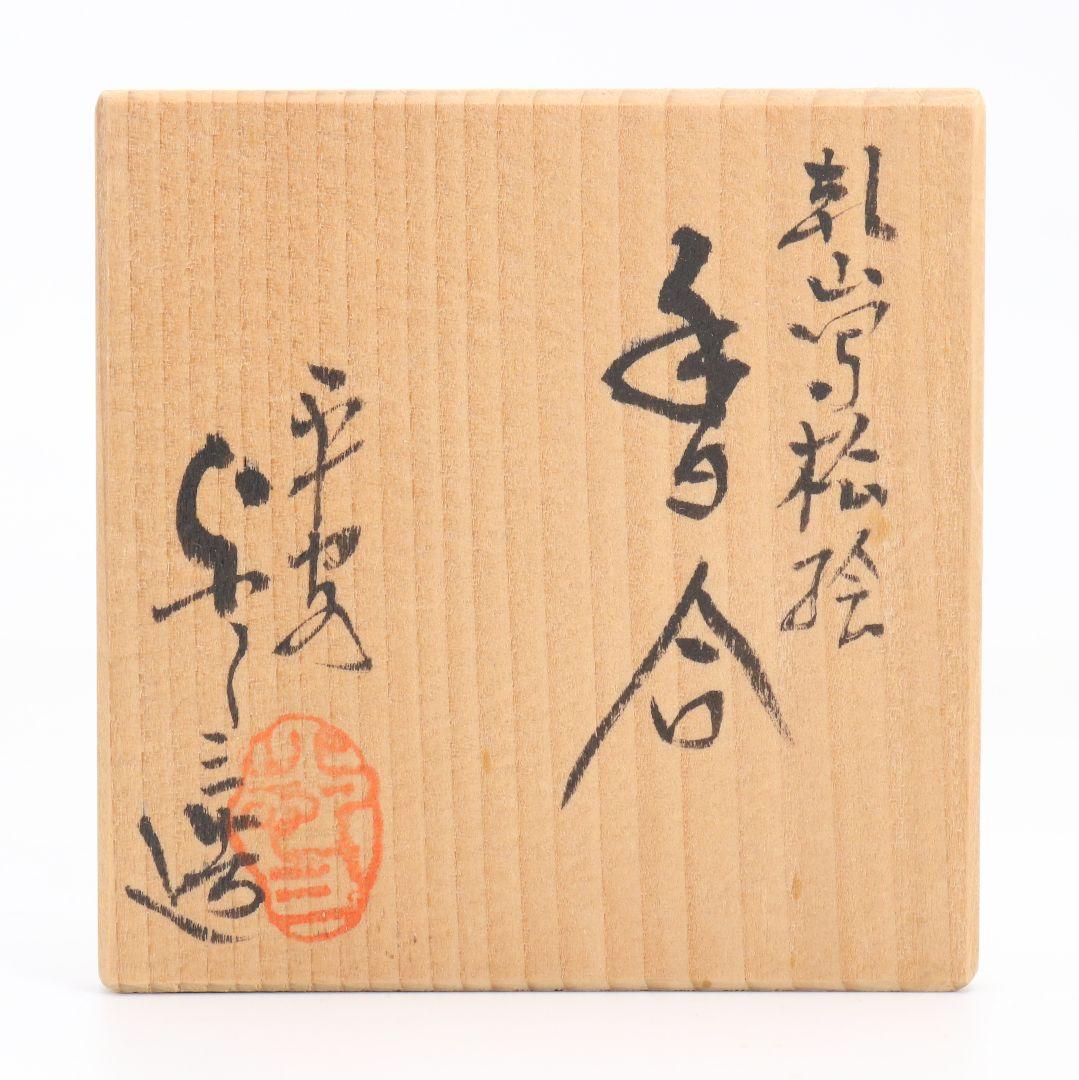 乾山写松絵
香合
平安
三造